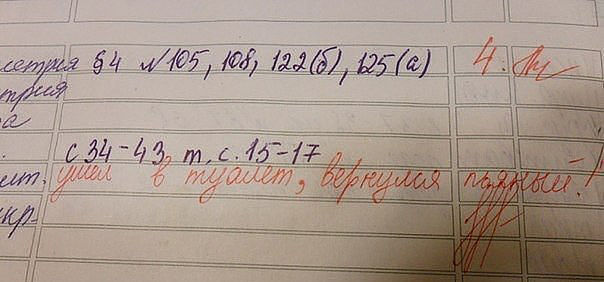 метрия §4 №105, 108, 122(б), 125(а) 4.
трия
а
с 34-43 т. с. 15-17
ит. ушел в туалет, вернулся пьяный!